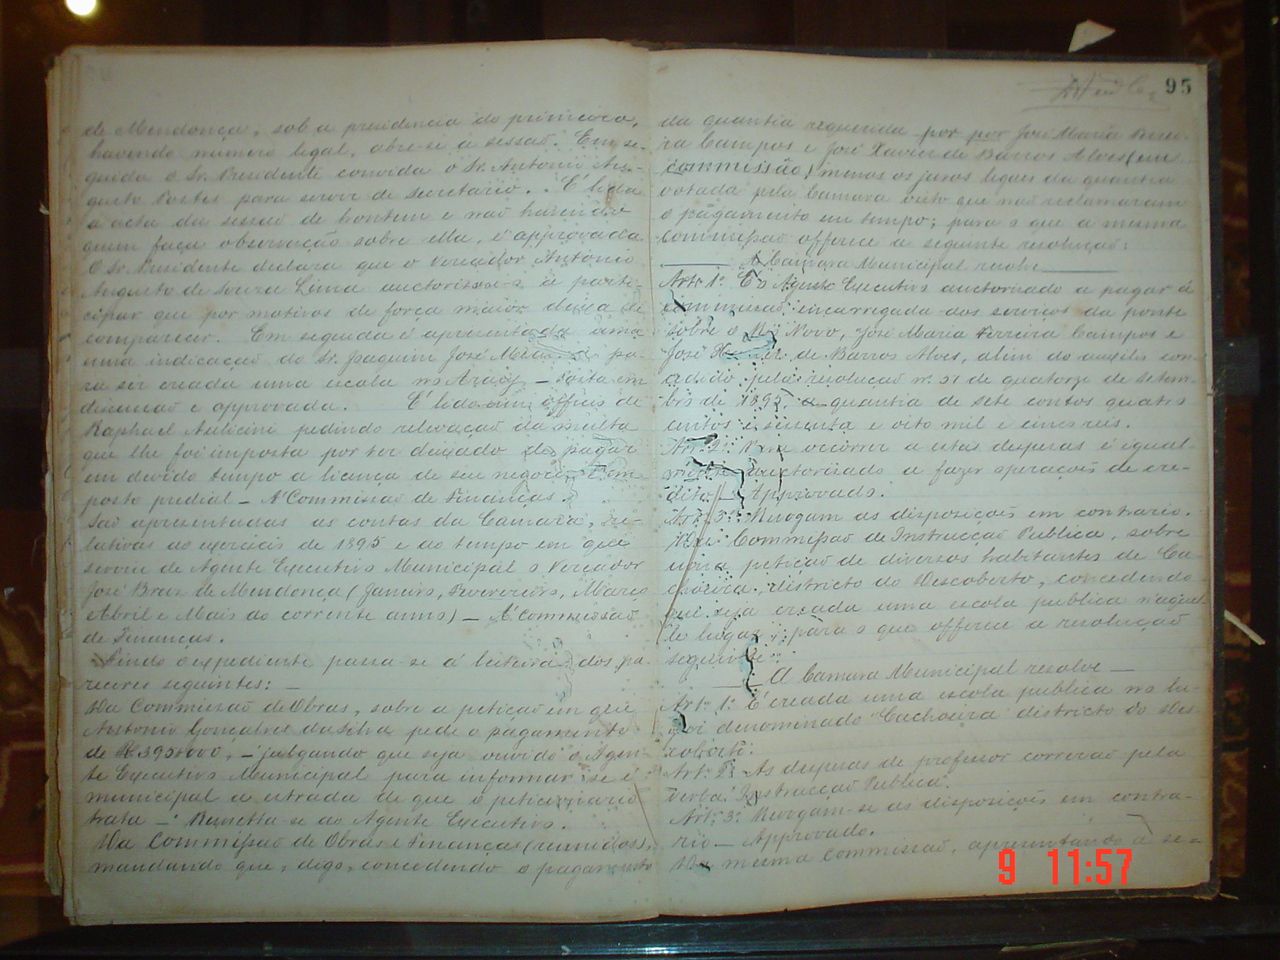 de Mendonça, sob a presidencia do primeiro,
havendo numero legal, abre-se a sessão. Em se-
guida o Sr. Presidente convida o Sr. Antonio Au-
gusto Portes para servir de secretario. É lida
a acta da sessão de hontem e não havendo
quem faça observação sobre ella, é approvada
O Sr. Presidente declara que o Vereador Antonio
Augusto de Souza Lima auctorisou-o a parti-
cipar que por motivos de força maior deixa de
comparecer. Em seguida é apresentada
uma indicação do Sr. Joaquim José pa-
ra ser creada uma escola no Aracy - Posta em
discussão e approvada. É lido um officio de
Raphael pedindo relevação da multa
que lhe foi imposta por ter deixado de pagar
em devido tempo a licença de seu negocio e im
posto predial - A' Commissão de Finanças.
São apresentadas as contas da Camara, re-
lativas ao exercicio de 1895 e ao tempo em que
serviu de Agente Executivo Municipal o Vereador
José Braz de Mendonça (Janeiro, Fevereiro, Março
Abril e Maio do corrente anno) - A' Commissão
de Finanças.
Findo o expediente passa-se á leitura dos pa
receres seguintes: -
Da Commissão de Obras, sobre a petição em que
Antonio Gonçalves da Silva pede o pagamento
de 395$000, - julgando que seja ouvido o Agen-
te Executivo Municipal para informar se é
municipal a estrada de que o peticionario
trata - Remetta-se ao Agente Executivo.
Da Commissão de Obras e Finanças (reunidas),
mandando que, digo, concedendo o pagamento
95
da quantia requerida por por José Maria Ferrei-
ra Campos e José Xavier de Barros Alves (em
commissão) menos os juros legaes da quantia
votada pela Camara visto que não reclamaram
o pagamento em tempo; para o que a mesma
Commissão offerece a seguinte resolução:
A Camara Municipal resolve
Art. 1º É o Agente Executivo auctorizado a pagar á
commissão encarregada dos serviços da ponte
sobre o Rio Novo, José Maria Ferreira Campos e
José Xavier de Barros Alves, alem do auxilio con-
cedido pela resolução nº 31 de quatorze de setem-
bro de 1895, a quantia de sete contos quatro
centos e sessenta e oito mil e cinco reis.
Art. 2º Para occorrer a estas despesas é igual-
mente auctorizado a fazer operações de cre-
dito - Approvado.
Art. 3º Revogam as disposições em contrario.
Da Commissão de Instrucção Publica, sobre
uma petição de diversos habitantes de Ca
choeira, districto do Descoberto, concedendo
que seja creada uma escola publica n'aquel
le lugar; para o que offerece a resolução
seguinte:
A Camara Municipal resolve
Art. 1º É creada uma escola publica no lu-
gar denominado "Cachoeira" districto do Des
coberto.
Art. 2º As despesas de professor correrão pela
verba Instrucção Publica.
Art. 3º Revogam-se as disposições em contra-
rio - Approvado.
Da mesma commissão, apresentando a se-
9 11:57